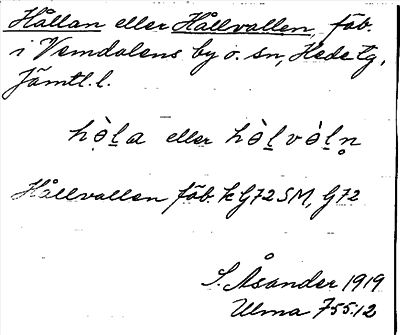 Hållan eller Hållvallen, fäb.
i Vemdalens by o. sn, Hede tg,
Jämtl. l.
hò̩l̠a eller hò̩l̠vò̩l̠n̥
Hållvallen fäb. k G72 SM, G72
S. Åsander 1919
Ulma 755:12